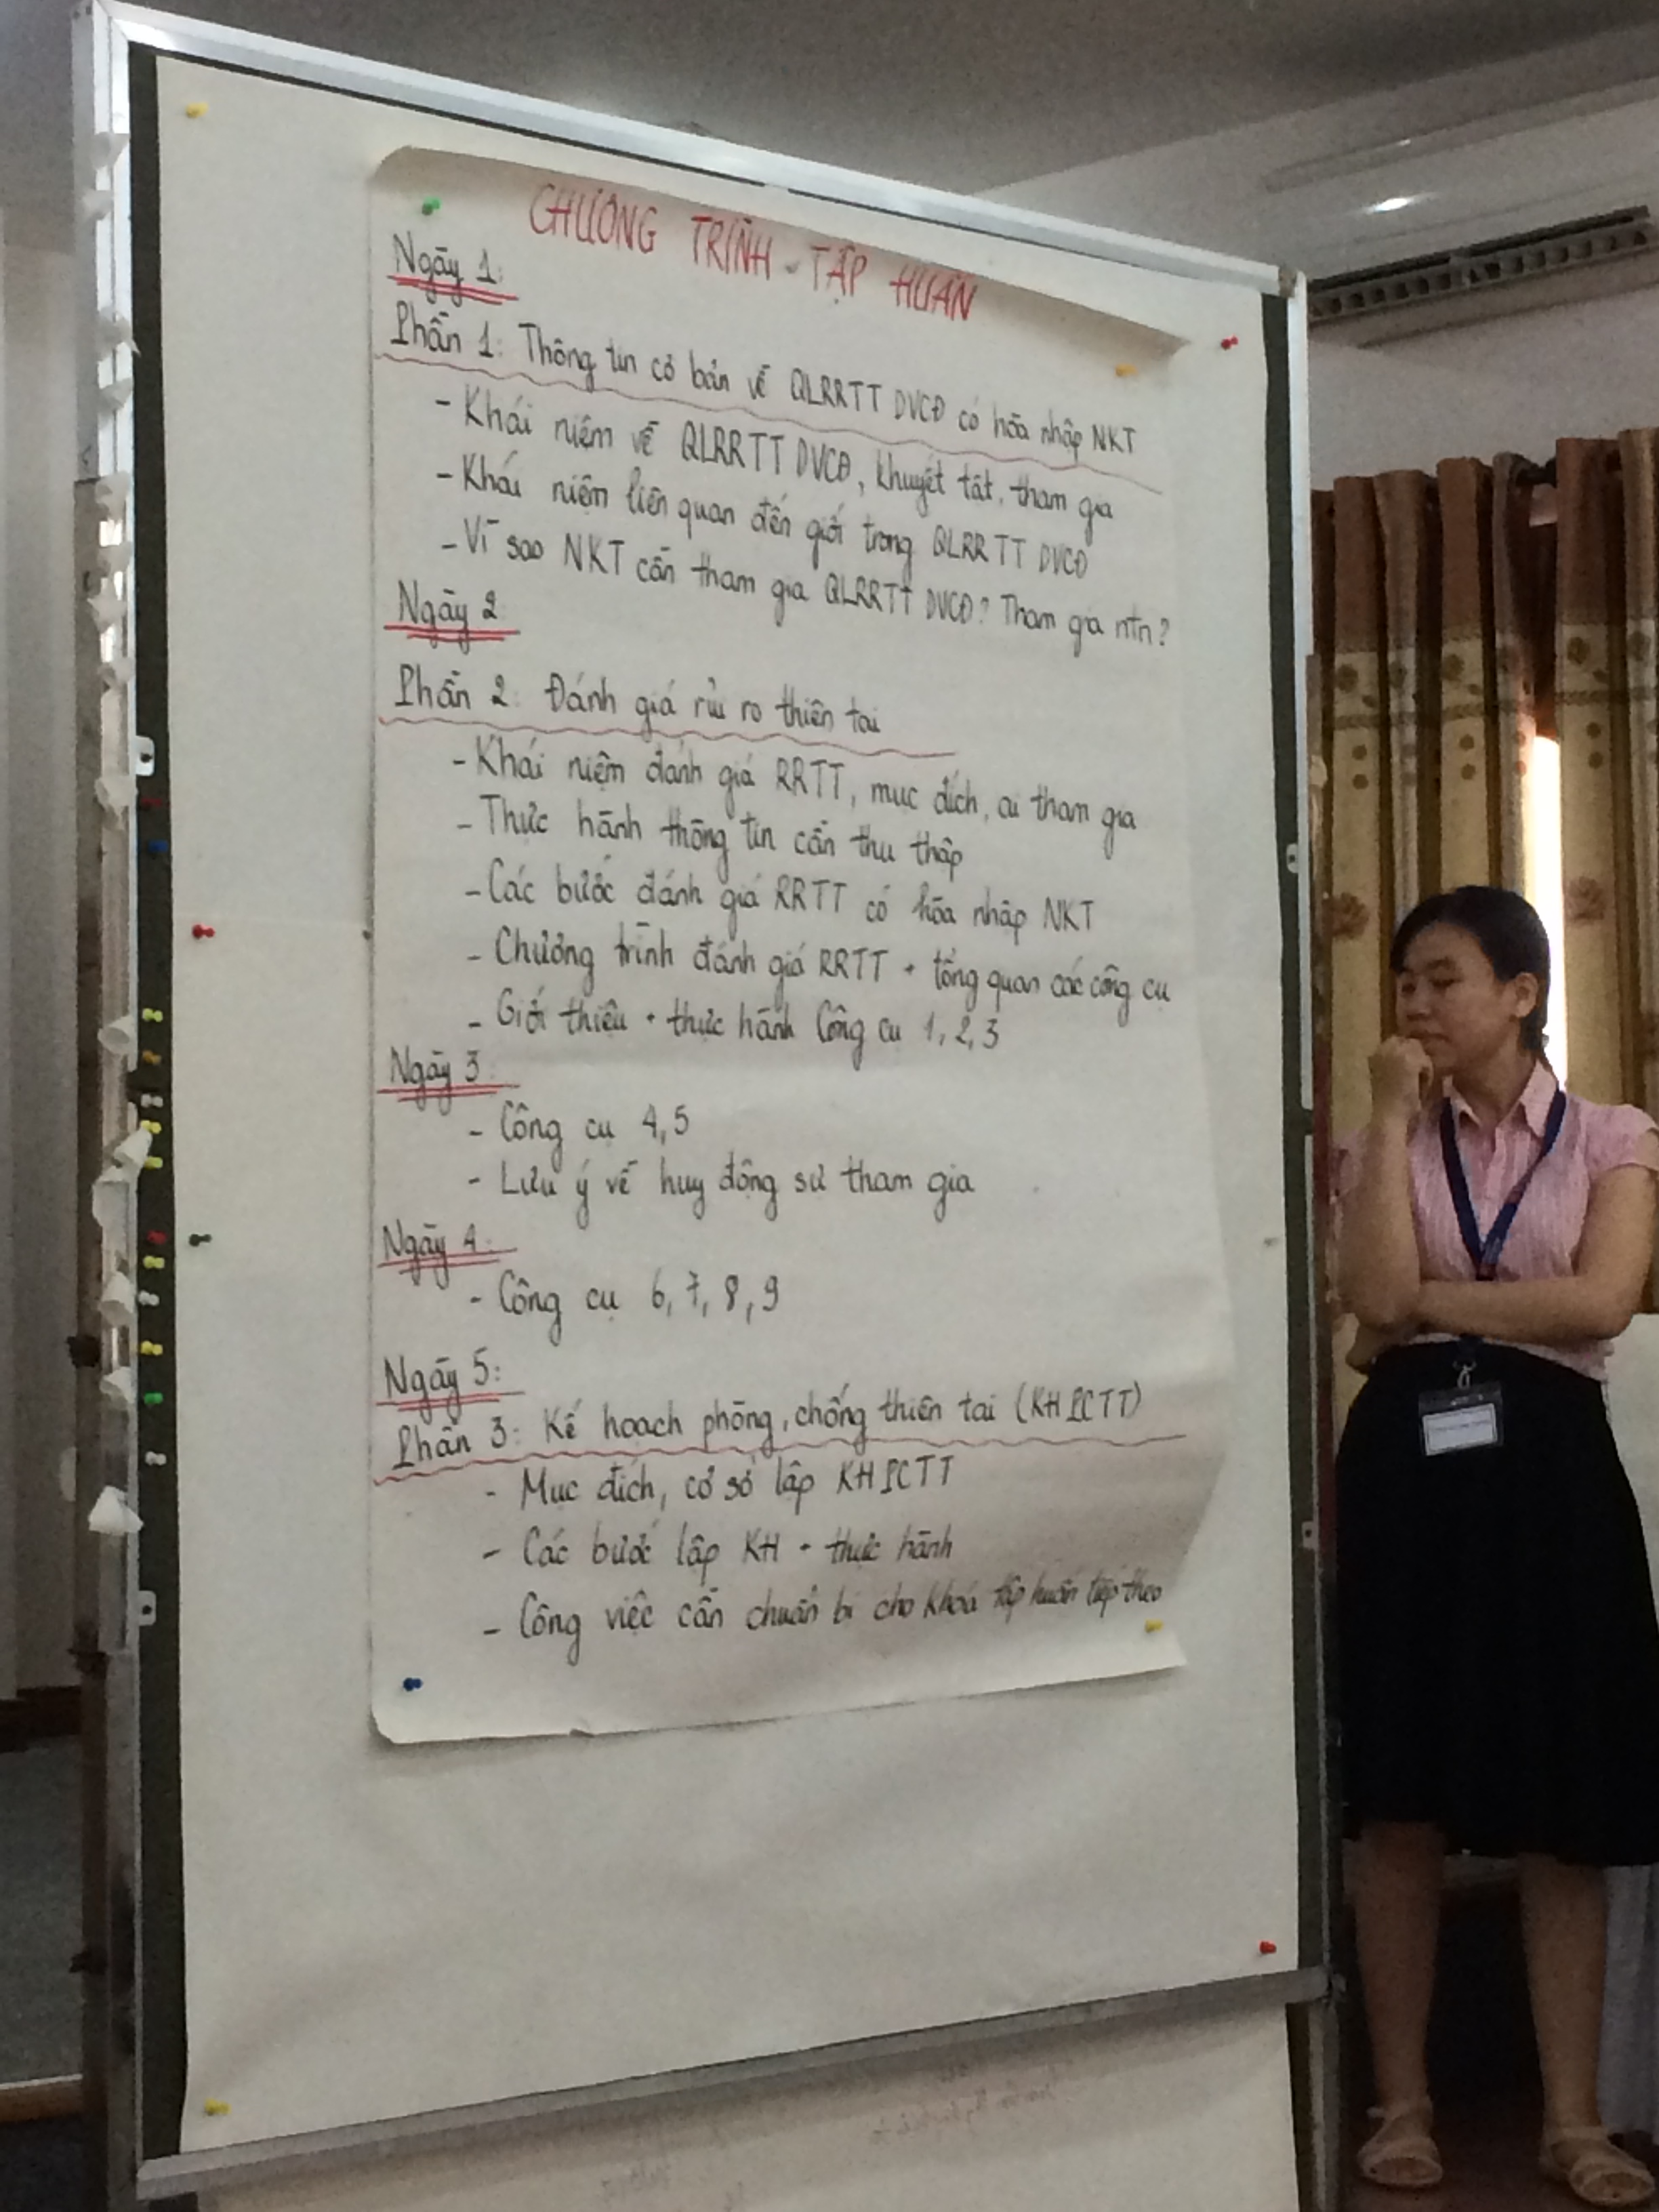 CHƯƠNG TRÌNH - TẬP HUẤN
Ngày 1:
Phần 1: Thông tin cơ bản về QLRRTT DVCĐ có hòa nhập NKT
- Khái niệm về QLRRTT DVCĐ, khuyết tật, tham gia
- Khái niệm liên quan đến giới trong QLRRTT DVCĐ
- Vì sao NKT cần tham gia QLRRTT DVCĐ? Tham gia ntn?
Ngày 2
Phần 2: Đánh giá rủi ro thiên tai
- Khái niệm đánh giá RRTT, mục đích, ai tham gia
- Thực hành thông tin cần thu thập
- Các bước đánh giá RRTT có hòa nhập NKT
- Chương trình đánh giá RRTT + tổng quan các công cụ
- Giới thiệu + thực hành Công cụ 1, 2, 3
Ngày 3:
- Công cụ 4, 5
- Lưu ý về huy động sự tham gia
Ngày 4:
- Công cụ 6, 7, 8, 9
Ngày 5:
Phần 3: Kế hoạch phòng, chống thiên tai (KHPCTT)
- Mục đích, cơ sở lập KHPCTT
- Các bước lập KH + thực hành
- Công việc cần chuẩn bị cho khóa tập huấn tiếp theo